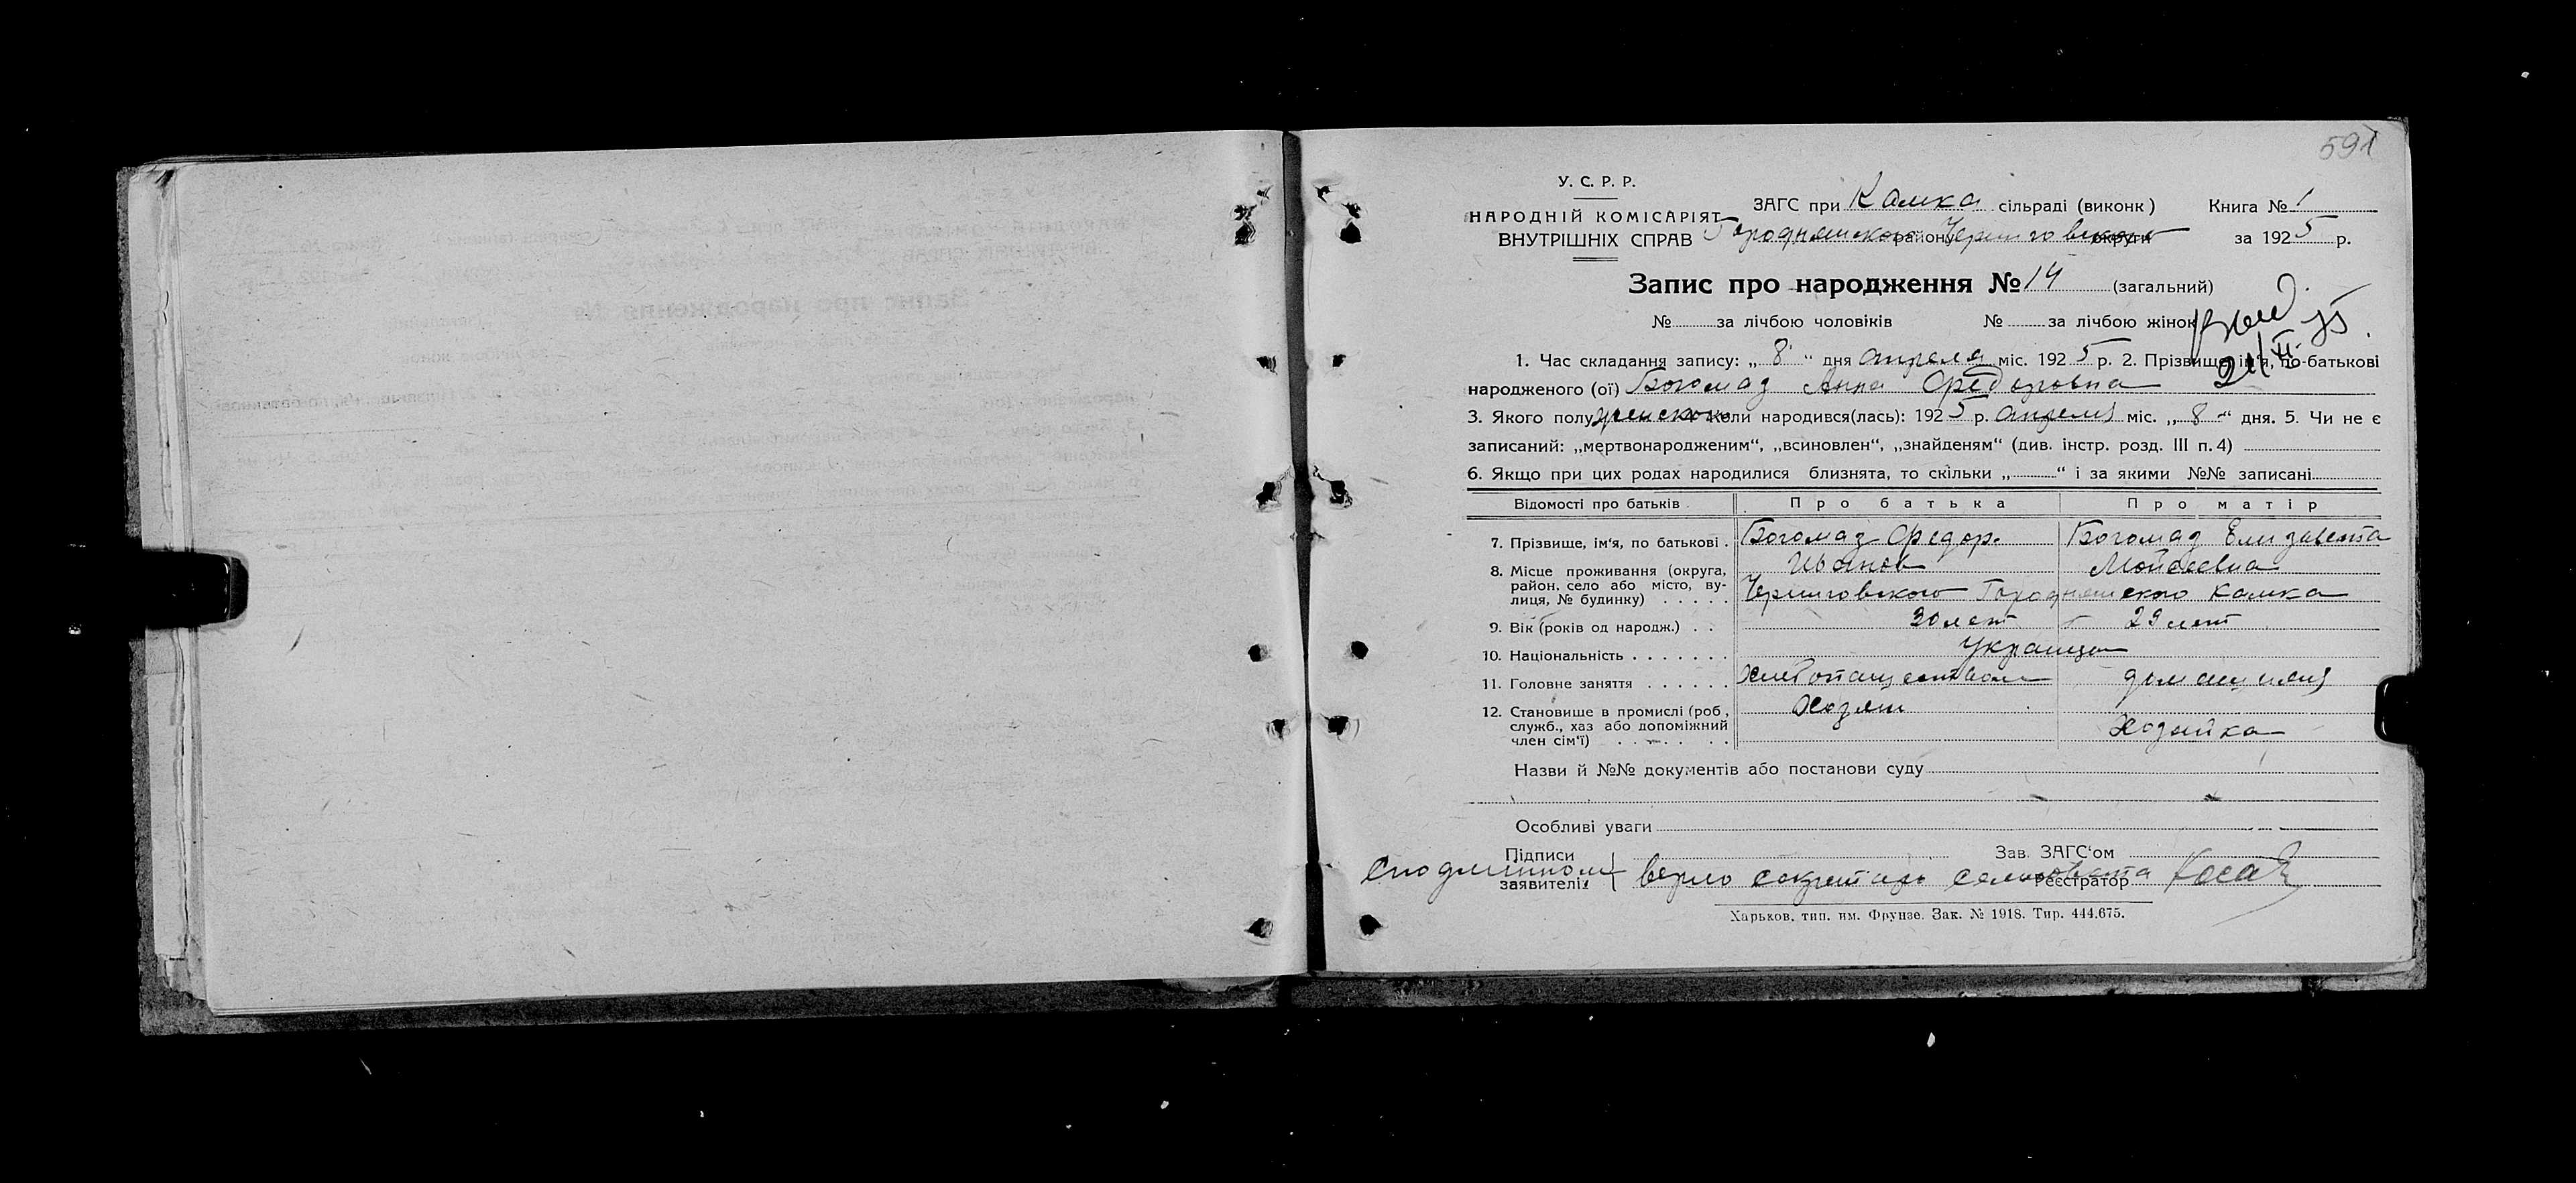 591
У. С. Р. Р.
НАРОДНІЙ КОМІСАРІЯТ
ВНУТРІШНІХ СПРАВ
ЗАГС при Камка сільраді (виконк) Книга № 1
Городнянского район Черниговского округи за 1925 р.
Запис про народження № 14 (загальний)
№ за лічбою чоловіків № за лічбою жінок
1. Час складання запису: „ 8 “ дня апреля міс. 1925 р. 2. Прізвище, ім'я, по-батькові
народженого (ої) Богомаз Анна Федоровна
3. Якого полу женского 4. Коли народився(лась): 1925 р. апреля міс. „ 8 “ дня. 5. Чи не є
записаний: „мертвонародженим“, „всиновлен“, „знайденям“ (див. інстр. розд. III п. 4)
6. Якщо при цих родах народилися близнята, то скільки „ “ і за якими №№ записані
Відомості про батьків Про батька Про матір
7. Прізвище, ім'я, по батькові . Богомаз Федор. Богомаз Елизавета
Иванов Мойсеевна
8. Місце проживання (округа, район, село або місто, вулиця, № будинку) . . . . . Черниговского Городнянского Камка
9. Вік (років од народж.) . . 30 лет 29 лет
10. Національність . . . . . . . Украинцы
11. Головне заняття . . . . . . Хлебопашеством домашняя
12. Становище в промислі (роб., служб., хаз або допоміжний член сім'ї) . . . . . . Хозяин Хозяйка
Назви й №№ документів або постанови суду
Особливі уваги
Підписи заявителів
Зав. ЗАГС'ом
Сподлинном верно секретарь сельсовета
Реєстратор
Харьков, тип. им. Фрунзе. Зак. № 1918. Тир. 444.675.